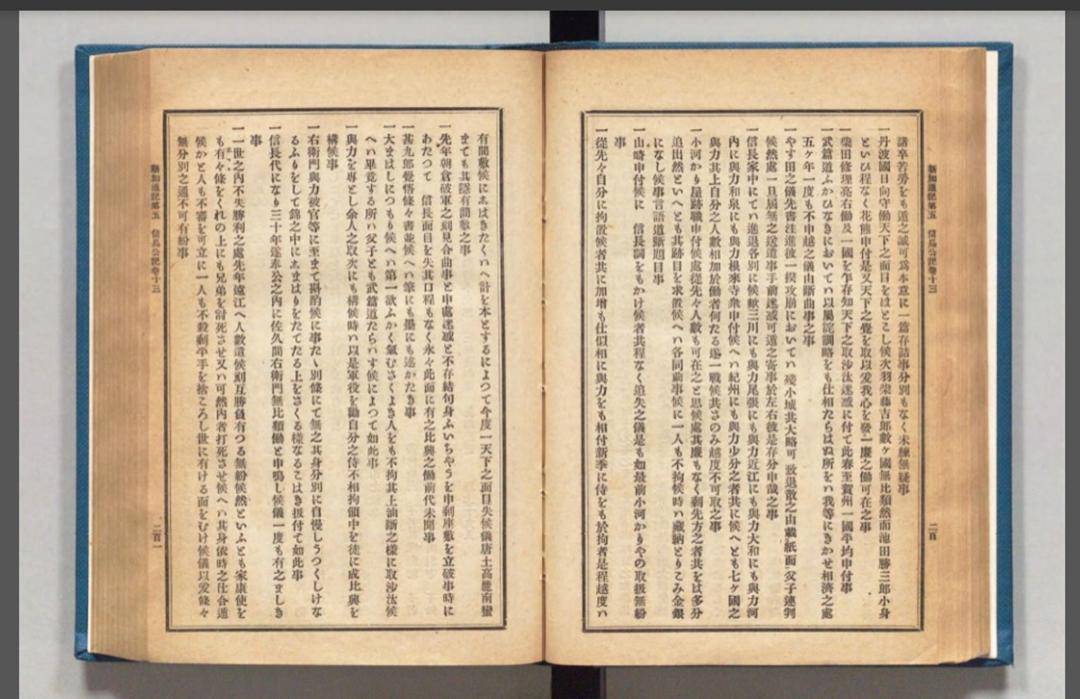 新加通記第五 信長公記卷十三
諸卒苦勞をも遁之誠可爲本意に一篇存詰事分別もなく未練無疑事
一丹波國日向守働天下之面目をほとこし候次羽柴藤吉郎數ヶ國無比類然而池田勝三郎小身
といひ程なく花熊申付是又天下之覺を取以爰我心を發一廉之働可在之事
一柴田修理亮右働及一國を乍存知天下之取沙汰迷惑に付て此春至賀州一國平均申付事
一武篇道ふかひなきにおいてハ以屬託調略をも仕相たらはぬ所をハ我等にきかせ相濟之處
五ヶ年一度も不申越之儀由斷曲事之事
一やす田之儀先書注進彼一揆攻崩においてハ殘小城共大略可致退散之由載紙面父子連判
候然處一旦屆無之送遣事手前迷惑可遁之寄事於左右彼是存分申哉之事
一信長家中にてハ進退各別に候歟三川にも與力尾張にも與力近江にも與力大和にも與力河
內に與力和泉にも與力根來寺衆申付候へハ紀州にも與力少分之者共に候へとも七ヶ國之
與力其上自分之人數相加於働者何たる遂一戰候共さのみ越度不可取之事
一小河かり屋跡職申付候處從先々人數も可在之と思候處其廉もなく剩先方之者共をは多分
追出然といへとも其跡目を求置候へハ各同前事候に一人も不拘候時ハ藏納とりこみ金銀
になし候事言語道斷題目事
一山崎申付候に 信長詞をもかけ候者共程なく追失之儀是も如最前小河かりやの取扱無紛
事
一從先々自分に拘置候者共に加增も仕似相に與力をも相付新季に侍をも於拘者是程越度ハ
二百
有間敷候にしはきたくハへ計を本とするによつて今度一天下之面目失候儀唐土高麗南蠻
まても其隱有間敷之事
一先年朝倉破軍之刻見合曲事と申處迷惑と不存結句身ふいちやうを申剩座敷を立破事時に
あたつて 信長面目を失其口程もなく永々此面に有之比興之働前代未聞事
一甚九郎覺悟條々書並候へハ筆にも墨にも述かたき事
一大まはしにつもり候へハ第一欲ふかく氣むさくよき人をも不拘其上油斷之樣に取沙汰候
へハ畢竟する所ハ父子とも武篇道たらハす候によつて如此事
一與力を專とし余人之取次にも構候時ハ以是軍役を勤自分之侍不相拘領中を徒に成比興を
構候事
一右衛門與力被官等に至まて斟酌候に事たゝ別條にて無之其身分別に自慢しうつくしけな
るふりをして錦之中にしまはりをたてたる上をさくる樣なるこはき扱付て如此事
一信長代になり三十年遂奉公之內に佐久間右衛門無比類働と申鳴し候儀一度も有之ましき
事
一一世之內不失勝利之處先年遠江へ人數遣候刻互勝負有つる無紛候然といふとも家康使を
も有々條をくれの上にも兄弟を討死させ又ハ可然內者打死させ候へハ其身依時之仕合遁
候かと人も不審を可立に一人も不殺剩平手を捨ころし世に有けな面をむけ候儀以爰條々
無分別之通不可有紛事
新加通記第五 信長公記卷十三
二百一